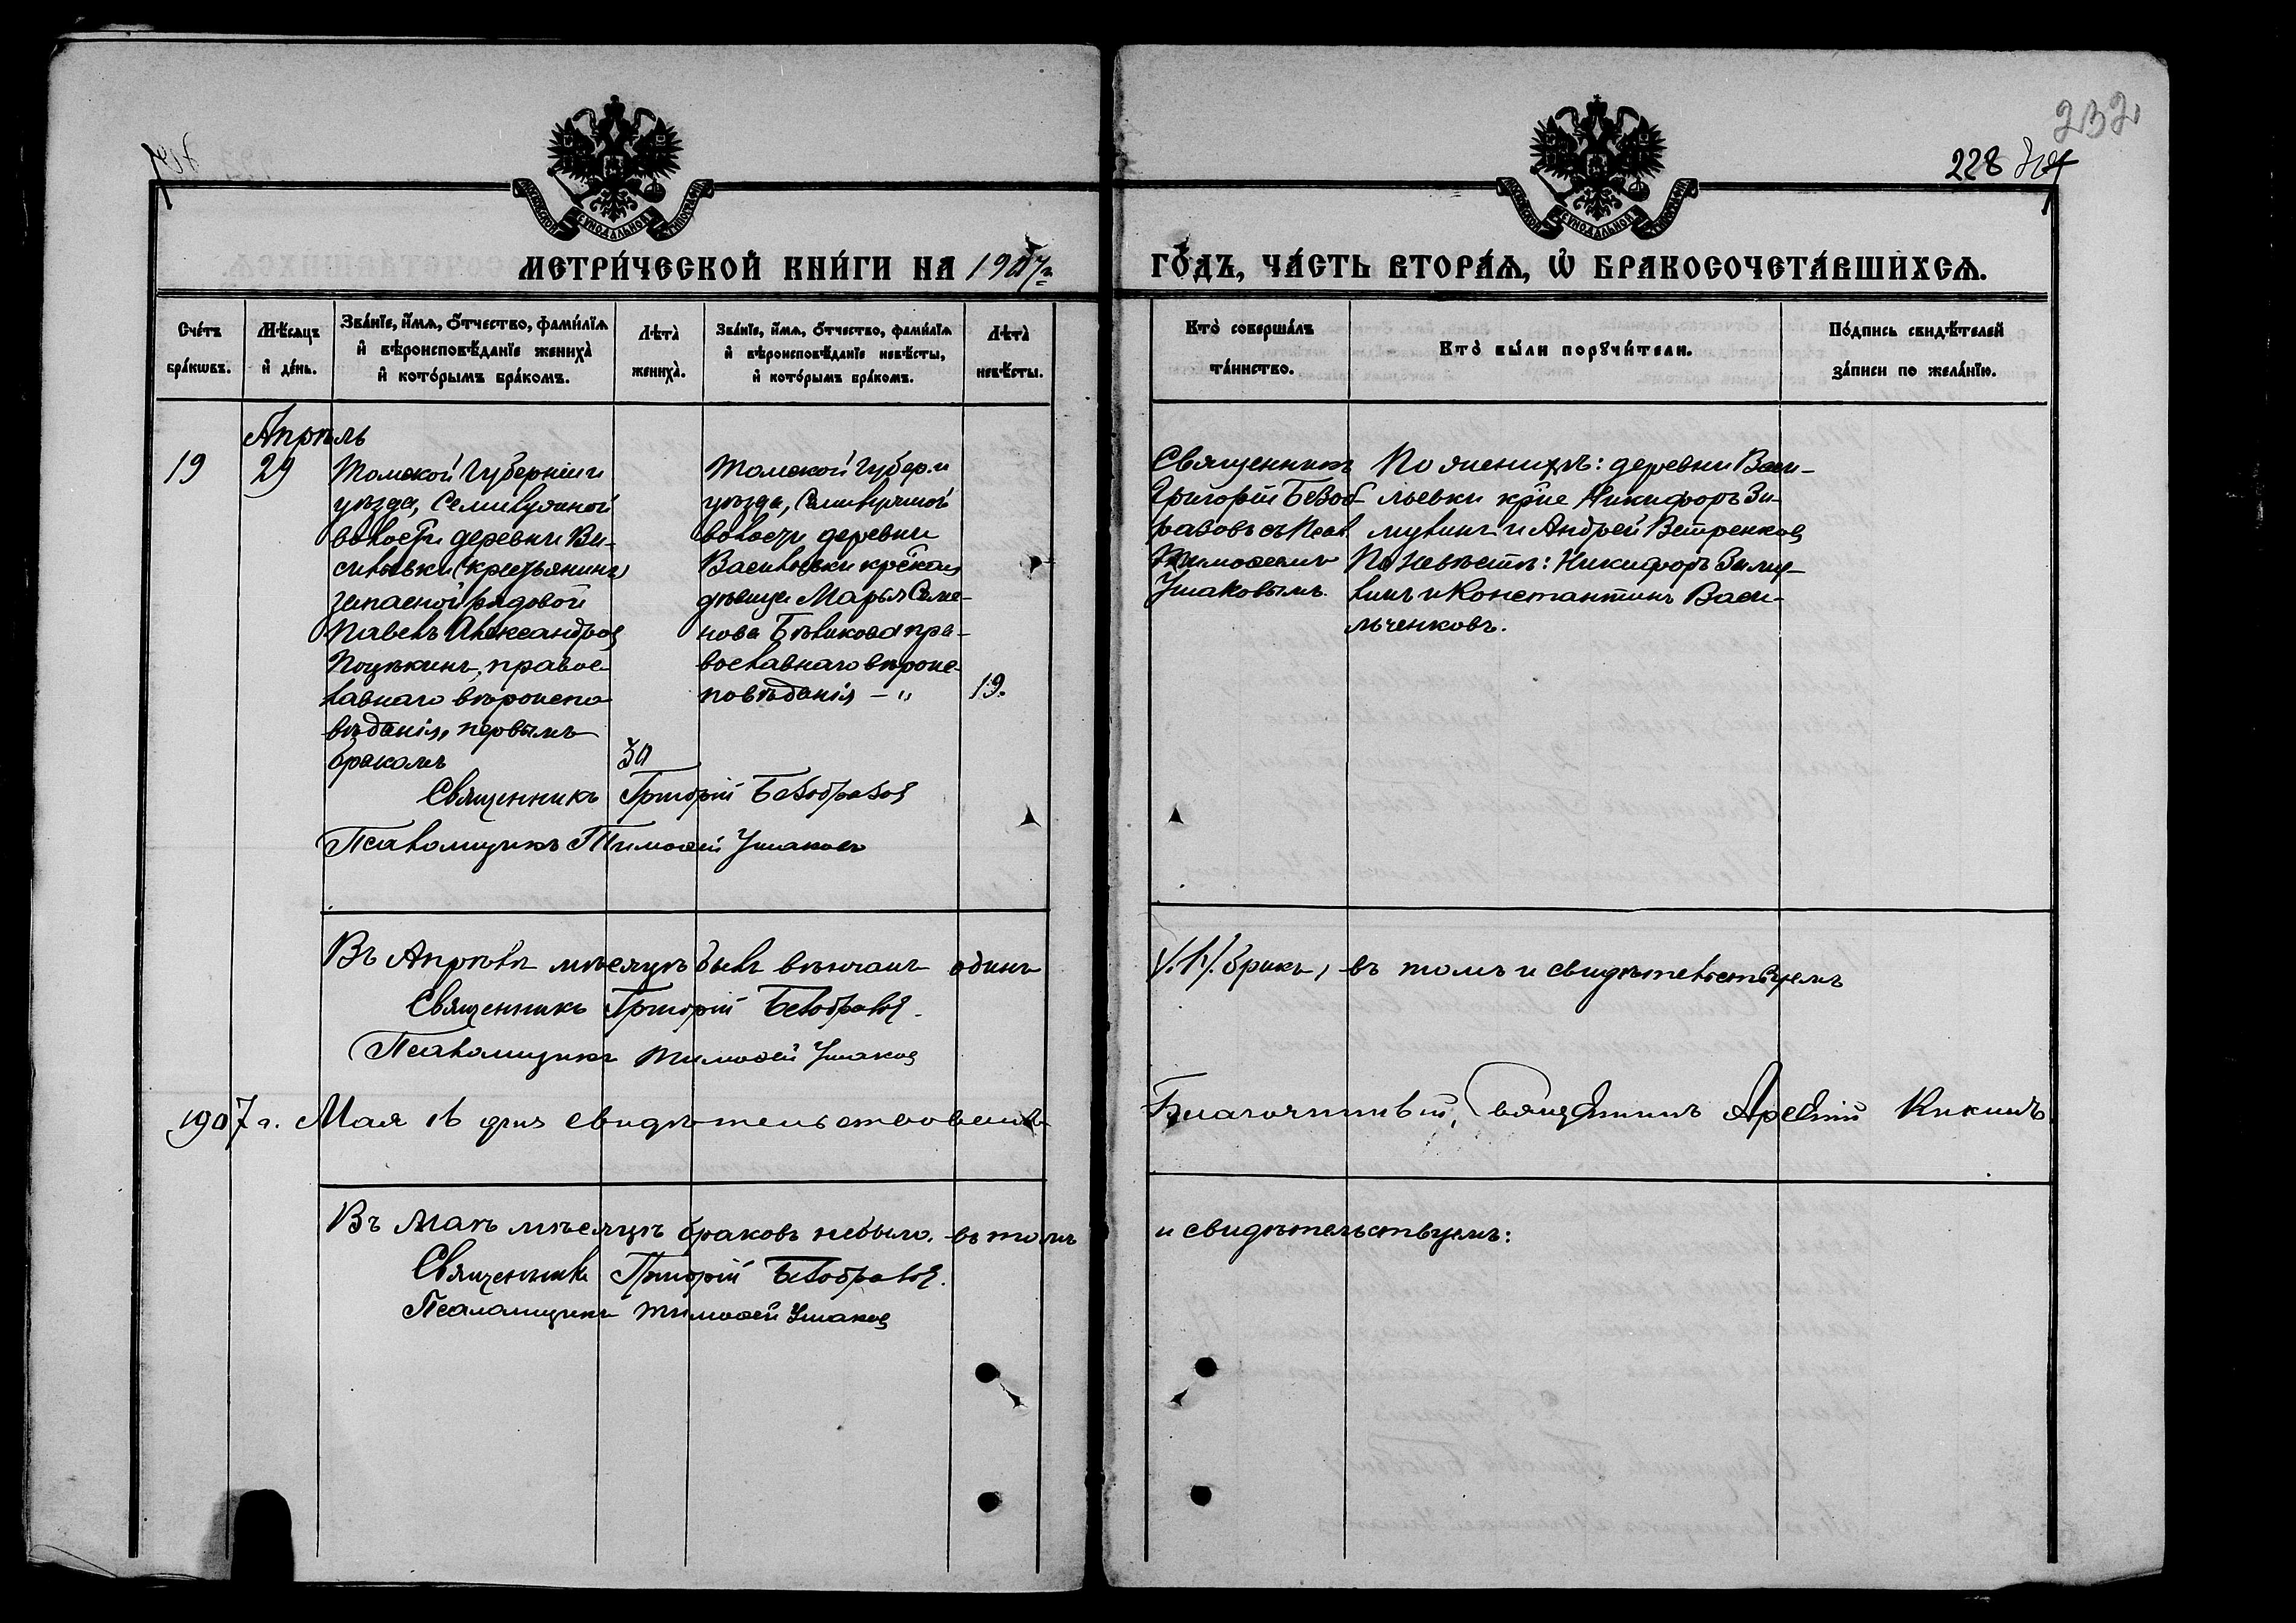 232
228
МОСКОВСКОЙ СУНОДАЛЬНОЙ ТИПОГРАФІИ
МОСКОВСКОЙ СУНОДАЛЬНОЙ ТИПОГРАФІИ
МЕТРИ́ЧЕСКОЙ КНИ́ГИ НА 1907 г.
ГО́ДЪ, ЧА́СТЬ ВТОРА́Ѧ, Ѿ БРАКОСОЧЕТА́ВШИХСѦ.
Сче́тъ бра́кѡвъ.
Мѣ́сѧцъ и҆ де́нь.
Зва́нїе, и҆́мѧ, о҆́тчество, фами́лїѧ и҆ вѣроисповѣ́данїе жениха̀ и҆ кото́рымъ бра́комъ.
Лѣта̀ жениха̀.
Зва́нїе, и҆́мѧ, о҆́тчество, фами́лїѧ и҆ вѣроисповѣ́данїе невѣ́сты, и҆ кото́рымъ бра́комъ.
Лѣта̀ невѣ́сты.
Кто̀ соверша́лъ та́инство.
Кто̀ бы́ли порꙋчи́тели.
По́дпись свидѣ́телей за́писи по жела́нїю.
Апрѣль
19
29
Томской Губерніи и
уѣзда, Семилужной
волости деревни Ва-
сильевки крестьянинъ
запасной рядовой
Павелъ Александров
Поцѣкинъ, правос
лавнаго вѣроиспо
вѣданія, первымъ
бракомъ
30
Томской Губер. и
уѣзда, Семилужной
волости деревни
Васильевки крестская
дѣвица Марья Семе-
нова Бѣликова пра-
вославнаго вѣроис-
повѣданія - "
19.
Священникъ
Григорій Безоб-
разовъ съ Псал
Тимоѳеемъ
Ушаковымъ.
По женихѣ: деревни Васи-
льевки кр̃не Никифоръ Зи-
мулинъ и Андрей Ветренков
По невѣстѣ: Никифоръ Зиму-
линъ и Константинъ Васи-
льченковъ.
Священникъ Григорій Безобразов
Псаломщикъ Тимоѳей Ушаковъ
Въ Апрѣлѣ мѣсяцѣ былъ вѣнчанъ одинъ /.1./ бракъ, въ томъ и свидѣтельствуемъ
Священникъ Григорій Безобразов.
Псаломщикъ Тимоѳей Ушаков
1907 г. Мая 16 дня свидѣтельствовалъ Благочинный, Священникъ Арсеній Кикинъ
Въ Маѣ мѣсяцѣ браковъ небыло. въ томъ и свидѣтельствуемъ:
Священникъ Григорій Безобразов.
Псаломщикъ Тимоѳей Ушаков